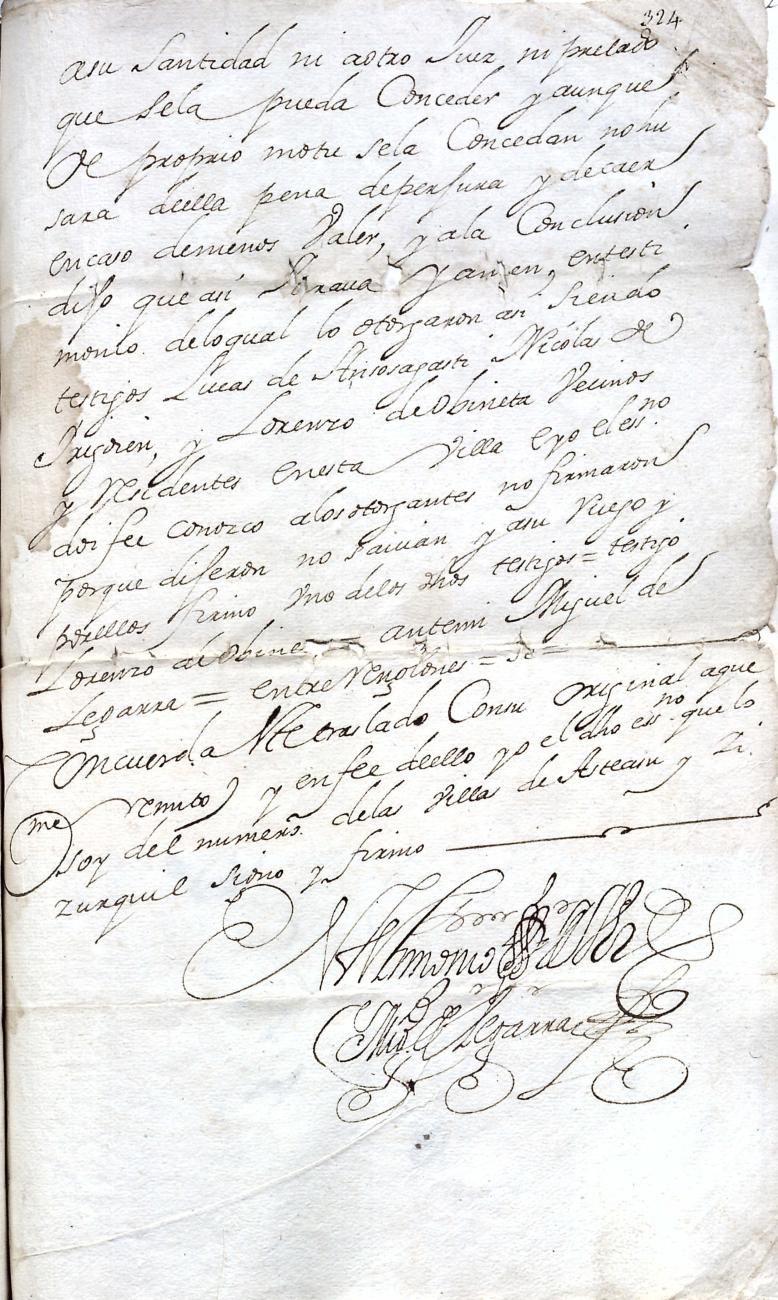 324
asu Santidad ni aotro Juez, ni prelado
que sela pueda Conceder yaunque
de proprio motu sela Concedan nohu
sara deella pena deperjura y decaer
encaso demenos Valer, yala Conclusion
dijo queasi Juraua yamen, entesti
monio deloqual lo otorgaron asi Siendo
testigos Lucas de Ansorasasti Nicolas de
Yrigoien, y Lorenzo deObineta Vecinos
y residentes enesta Villa eyo eless.no
doi fee conozco alosotorgantes nofirmaron
porque dijeron no Saiuian yasu ruego y
porellos firmo Vno delos dhos testigos = testigo
Lorenzo de Obine = antemi Miguel de
Legarra = entre Renglones = se =
Concuerda este traslado Consu Original aque
me remito y enfee deello yo el dho ess.no que lo
soy del numero delas Villas de Asteasu y Zi
zurquil signo y firmo
En testimonio de Verdad
Mig.l de Legarra